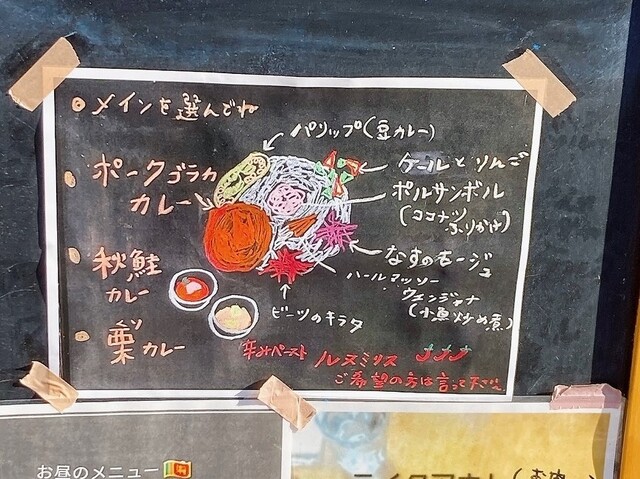 メインを選んでね
パリップ(豆カレー)
ポークゴラカ
カレー
ケールとりんご
ポルサンボル
(ココナツ
ふりかけ)
秋鮭
カレー
なすのモージュ
ハールマッソー
ウェンジャナ
(小魚炒め煮)
ビーツのキラタ
くり
栗カレー
辛みペースト ルヌミリス
ご希望の方は言って下さい
お昼のメニュー